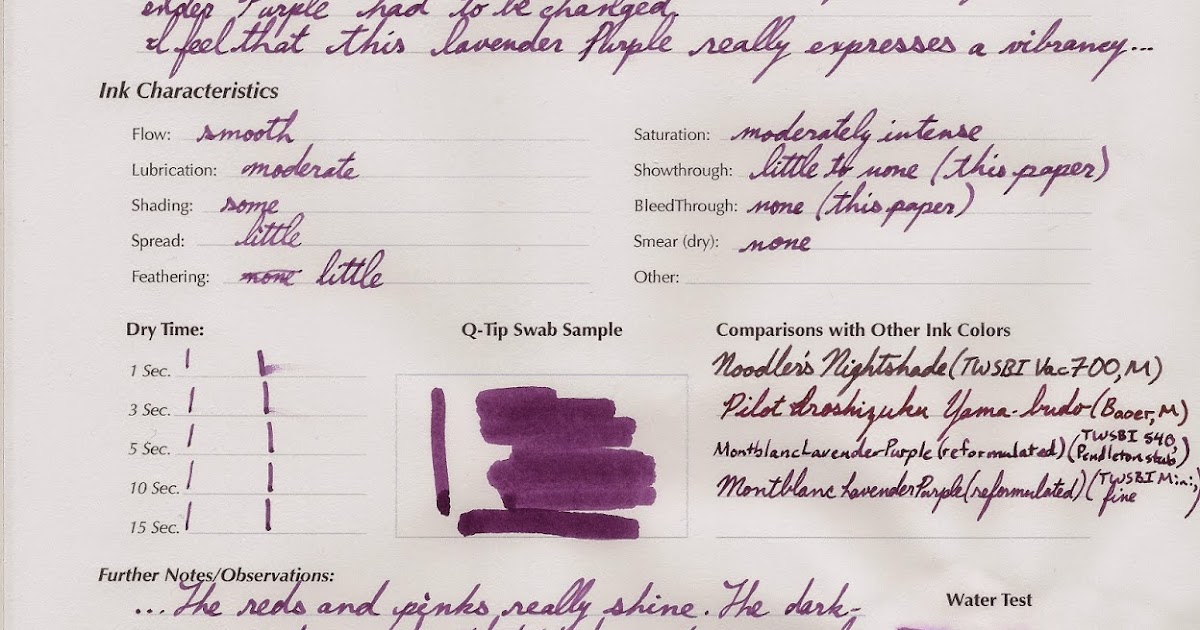 ender Purple had to be changed.
I feel that this lavender Purple really expresses a vibrancy...
Ink Characteristics
Flow: smooth
Lubrication: moderate
Shading: some
Spread: little
Feathering: none little
Saturation: moderately intense
Showthrough: little to none (this paper)
BleedThrough: none (this paper)
Smear (dry): none
Other:
Dry Time:
1 Sec.
3 Sec.
5 Sec.
10 Sec.
15 Sec.
Q-Tip Swab Sample
Comparisons with Other Ink Colors
Noodler's Nightshade (TWSBI Vac 700, M)
Pilot Iroshizuku Yama-budo (Baoer, M)
Montblanc Lavender Purple (reformulated) (TWSBI 540, Pendleton stub)
Montblanc Lavender Purple (reformulated) (TWSBI Mini, fine
Further Notes/Observations:
...The reds and pinks really shine. The dark-
Water Test